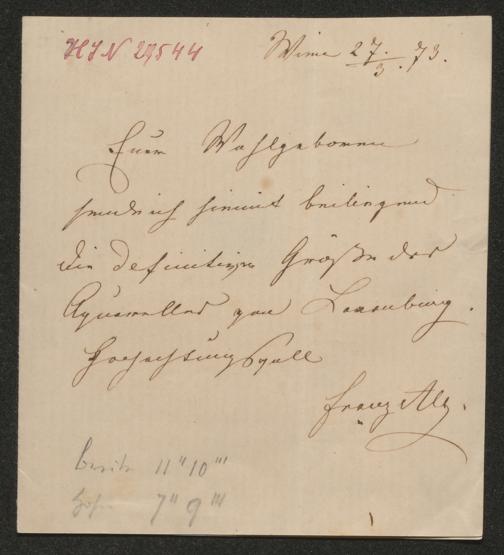 HIN 29544
Wien 27./3. 73.
Euer Wohlgeboren
sende ich hiemit beiliegend
die definitive Größe des
Aquarelles von Laxenburg.
Hochachtungsvoll
Franz Alt.
Breite 11" 10'''
Höhe 7" 9'''